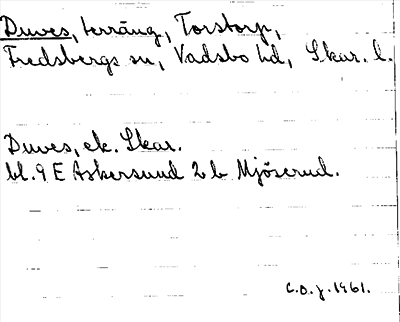 Duves, terräng, Torstorp,
Fredsbergs sn, Vadsbo hd, Skar. l.
Duves, ek. Skar.
bl. 9 E Askersund 2 b Mjöserud.
C.O.J. 1961.